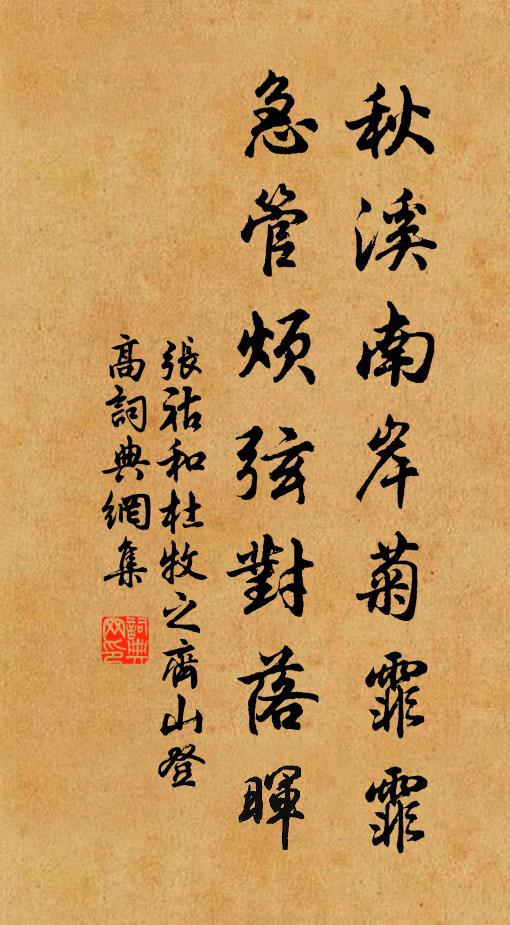 秋溪南岸菊霏霏
急管煩弦對落暉
張祜和杜牧之齊山登
高詞典網集
詞典
网印